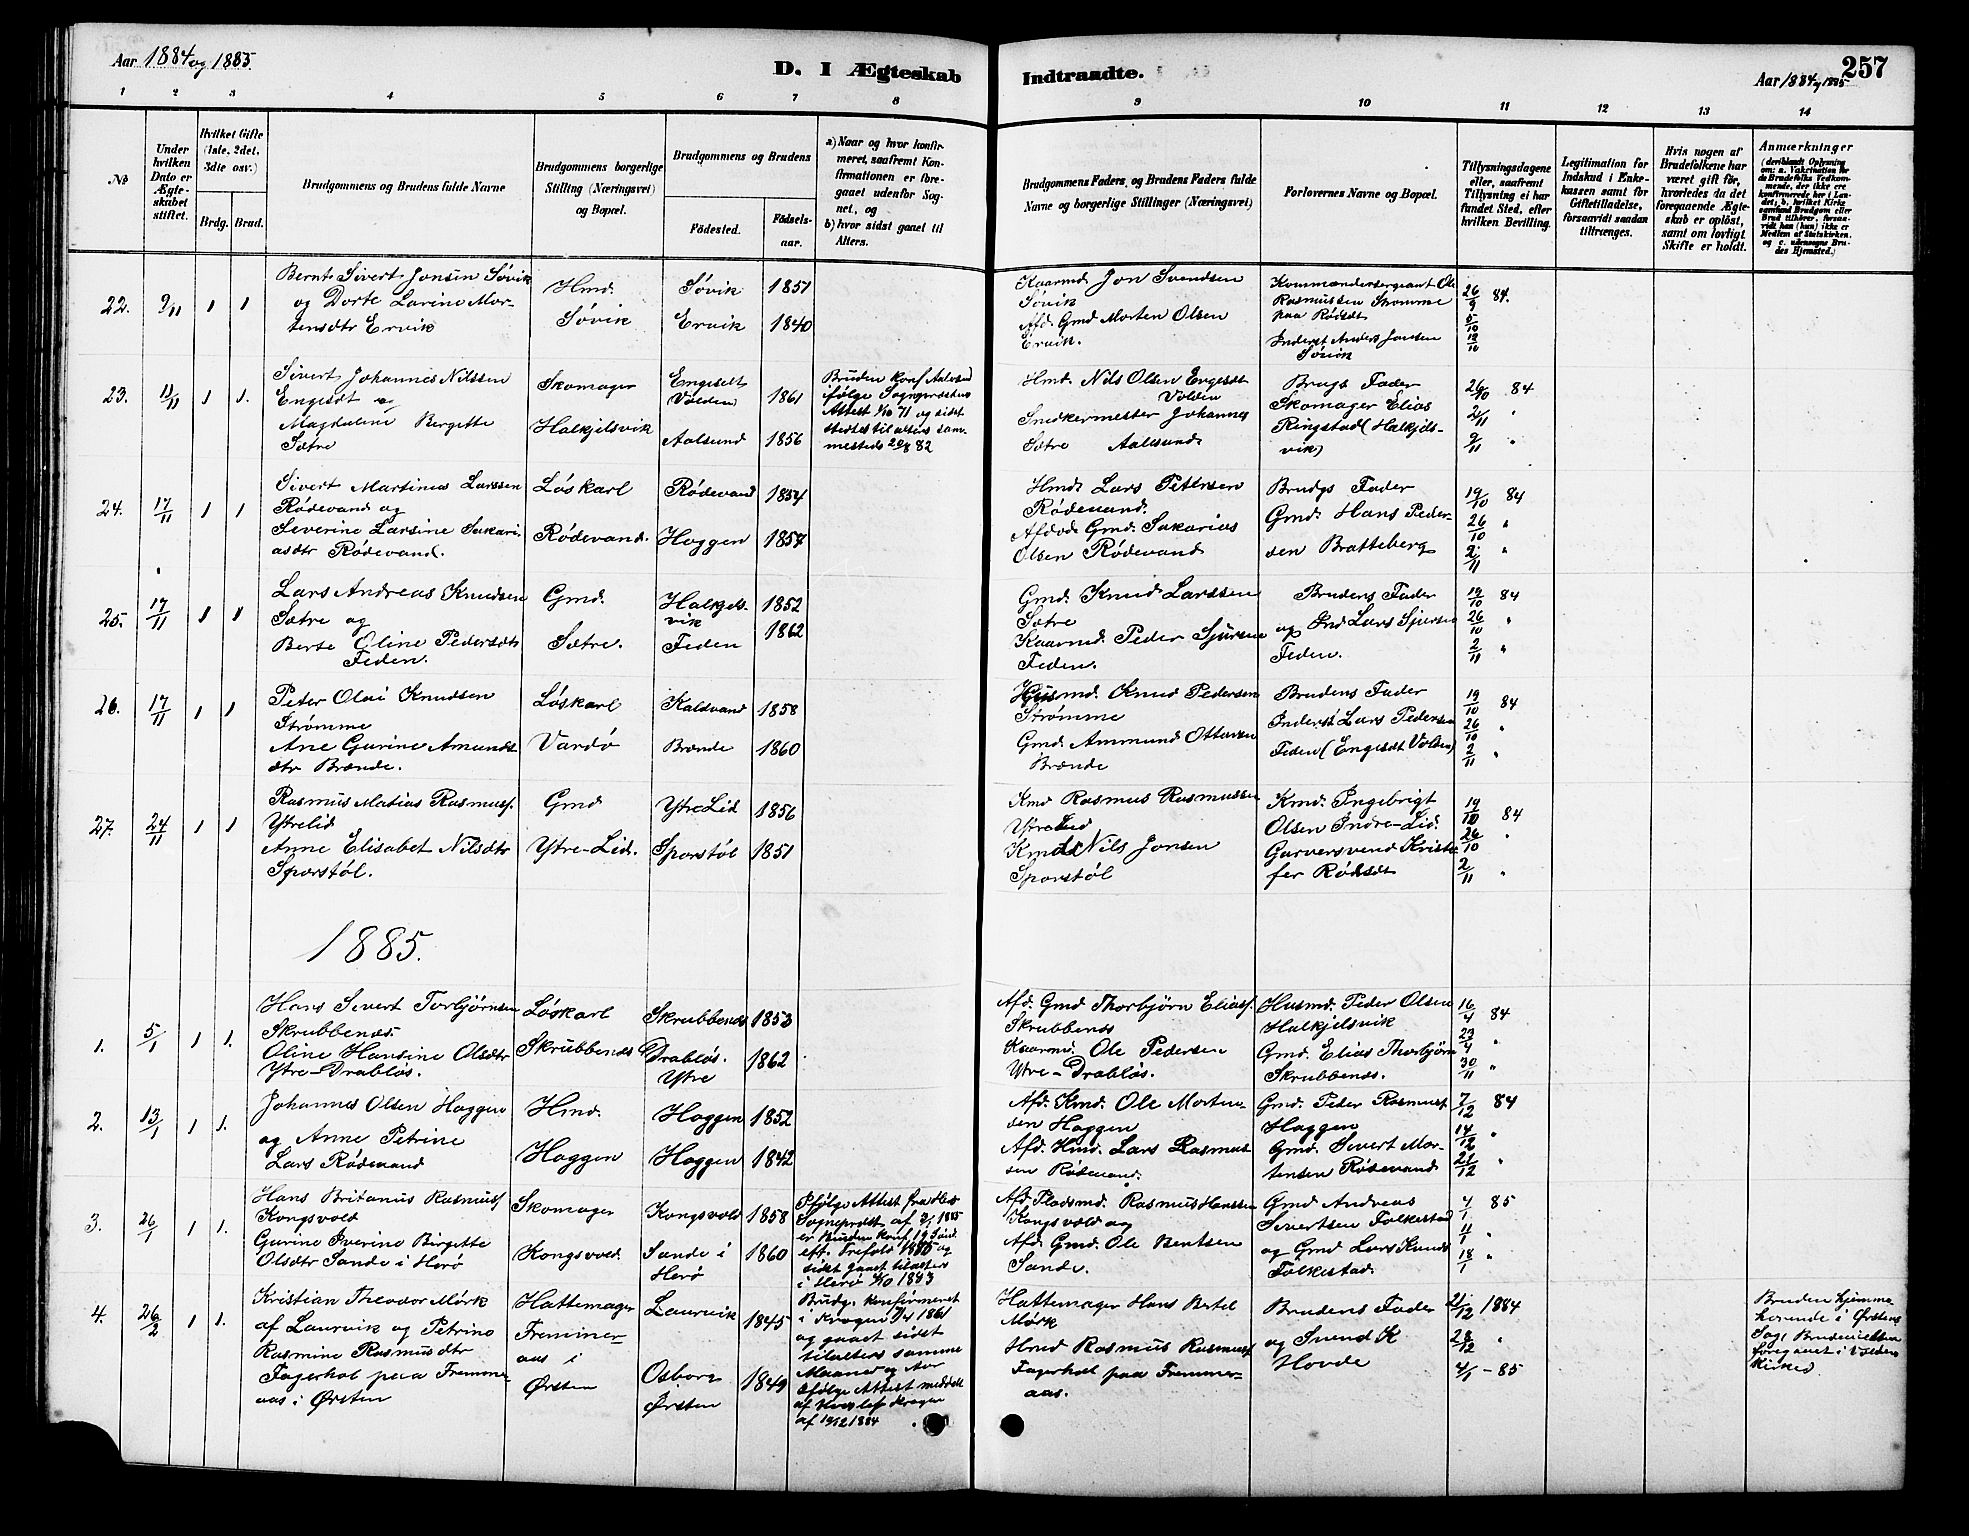 Aar 1884 og 1885
D. I Ægteskab
Indtraadte.
Aar 1884 og 1885
257
1 2 3 4 5 6 7 8
9 10 11 12 13 14
No
Under hvilken Dato er Ægteskabet stiftet.
Hvilket Gifte (1ste, 2det, 3die osv.)
Brdg. Brud.
Brudgommens og Brudens fulde Navne
Brudgommens borgerlige Stilling (Næringsvei) og Bopæl.
Brudgommens og Brudens
Födested.
Födselsaar.
a) Naar og hvor konfirmeret, saafremt Konfirmationen er foregaaet udenfor Sognet, og
b) hvor sidst gaaet til Alters.
Brudgommens Faders, og Brudens Faders fulde Navne og borgerlige Stillinger (Næringsvei)
Forlovernes Navne og Bopæl.
Tillysningsdagene eller, saafremt Tillysning ei har fundet Sted, efter hvilken Bevilling.
Legitimation for Indskud i Enkekassen samt for Giftetilladelse, forsaavidt saadan tiltrænges.
Hvis nogen af Brudefolkene har været gift för, hvorledes da det foregaaende Ægteskab er oplöst, samt om lovligt Skifte er holdt.
Anmærkninger
(deriblandt Oplysning om: a. Vakcination for de Brudefolks Vedkommende, der ikke ere konfirmerede her i Landet; b. hvilket Kirkesamfund Brudgom eller Brud tilhörer, forsaavidt han (hun) ikke er Medlem af Statskirken, og c. udensogns Brudes Hjemsted.)
22. 9/11 1 1
Bernt Sivert Jonsen Søvik
og Dorte Larine Mortensdtr Ervik
Hmd.
Søvik
Søvik 1851
Ervik 1840
Kaarmd Jon Svendsen
Søvik
Afd. Gmd Morten Olsen
Ervik.
Kommandersergeant Ole
Rasmussen Strømme
paa Rødsdt
Inderst Anders Jonsen
Søvik
26/9 84.
5/10
12/10
23. 11/11 1 1.
Sivert Johannes Nilssen
Engesdt og
Magdalene Bergitte
Sætre
Skomager
Halkjelsvik
Engeset
Volden 1861
Aalesund 1856
Bruden konf Aalesund
ifølge Sogneprestens
Attest No 71 og sidst
stedes til alters sammesteds 20/8 82
Hmd. Nils Olsen Engesdt
Volden
Snedkermester Johannes
Sætre Aalesund
Brugs Fader
Skomager Elias
Ringstad (Halkjelsvik)
26/10 84
2/11 "
9/11 "
24. 17/11 1 1
Sivert Martinus Larssen
Rødevand og
Severine Larsine Sakariasdtr Rødevand.
Løskarl
Rødevand.
Rødevand 1854
Hoggen 1857
Hmd. Lars Petersen
Rødevand.
Afdøde Gmd. Sakarias
Olsen Rødevand
Brudgs Fader
Gmd. Hans Pedersen Bratteberg
19/10 84
26/10 "
2/11 "
25. 17/11 1 1
Lars Andreas Knudsen
Sætre og
Berte Oline Pedersdtr
Feden.
Gmd.
Sætre.
Halkjelsvik 1852
Feden 1862
Gmd. Knud Larssen
Sætre
Kaarmd. Peder Sjursen
Feden.
Brudens Fader
og Ind Lars Sjursen
Feden.
19/10 84
26/10 "
2/11 "
26. 17/11 1 1
Peter Olai Knudsen
Strømme
Ane Gurine Amundsdtr Brænde.
Løskarl
Vardø
Kaldvand 1858
Brænde 1860
Husmd. Knud Pedersen
Strømme
Gmd. Ammund Ottersen
Brænde
Brudens Fader
Inderst Lars Pedersen
Feden (Engesdt Volden)
19/10 84
26/10 "
2/11 "
27. 24/11 1 1
Rasmus Matias Rasmuss.
Ytrelid
Anne Elisabet Nilsdtr
Sporstøl.
Gmd
Ytre-Lid.
Ytre Lid 1856
Sporstøl 1851
Kmd Rasmus Rasmussen
Ytre Lid
Kmd Nils Jonsen
Sporstøl
Kmd. Ingebrigt
Olsen Indre-Lid.
Garversvend Kristofer Rødsdt
19/10 84
26/10 "
2/11 "
1885.
1. 5/1 1 1.
Hans Sivert Torbjørnsen
Skrubbenes.
Oline Hansine Olsdtr
Ytre-Drabløs.
Løskarl
Skrubbenes
Skrubbenes 1853
Drabløs.
Ytre 1862
Afd. Gmd Thorbjørn Eliass.
Skrubbenes
Kaarmd. Ole Pedersen
Ytre-Drabløs.
Husmd. Peder Olsen
Halkjelsvik
Gmd. Elias Thorbjørn
Skrubbenes.
16/11 84
23/11 "
30/11 "
2. 13/1 1 1.
Johannes Olsen Hoggen
og Anne Petrine
Lars Rødevand
Hmd.
Hoggen
Hoggen 1852
Hoggen 1842
Afd. Kmd. Ole Mortensen Hoggen
Afd. Hmd. Lars Rasmussen Rødevand.
Gmd. Peder Rasmuss
Hoggen
Gmd. Sivert Mortensen Rødevand
7/12 84
14/12 "
21/12 "
3. 26/1 1 1.
Hans Britanus Rasmuss
Kongsvold
Gurine Iverine Birgitte
Olsdtr Sande i Herø
Skomager
Kongsvold.
Kongsvold 1858
Sande i
Herø 1860
Ifølge Attest fra Herø
Sogneprdst af 2/1 1885
er Bruden konf. 19 Sønd.
eft. Trefold. 1875 og
sidst gaaet til alters
i Herø 1883
Afd. Pladsmd. Rasmus Hanssen
Kongsvold og
Afd. Gmd. Ole Bentsen
Sande.
Gmd Andreas
Sivertsen Folkestad
og Gmd Lars Knuds
Folkestad.
4/1 85
11/1 "
18/1 "
4. 26/2 1 1.
Kristian Theodor Mørk
af Laurvik og Petrine
Rasmine Rasmusdtr
Fagerhol paa Fremmeraas i Ørsten
Hattemager
Fremmeraas i
Ørsten
Laurvik 1845
Osborg
Ørsten 1849
Brudg. konfirmeret
i Kragerø 1861
og gaaet sidst
til alters samme
Maaned og Aar
ifølge Attest meddelt
af Kragerø
af 10/12 1884
Hattemager Hans Bertel
Mørk
Hmd Rasmus Rasmuss
Fagerhol paa Fremmeraas.
Brudens Fader
og Svend K
Hovde
21/12 1884
28/12 "
4/1 - 85
Bruden hjemmehørende i Ørstens
Sogn. Brudevielsen
foregaaet i Voldens
Kirke